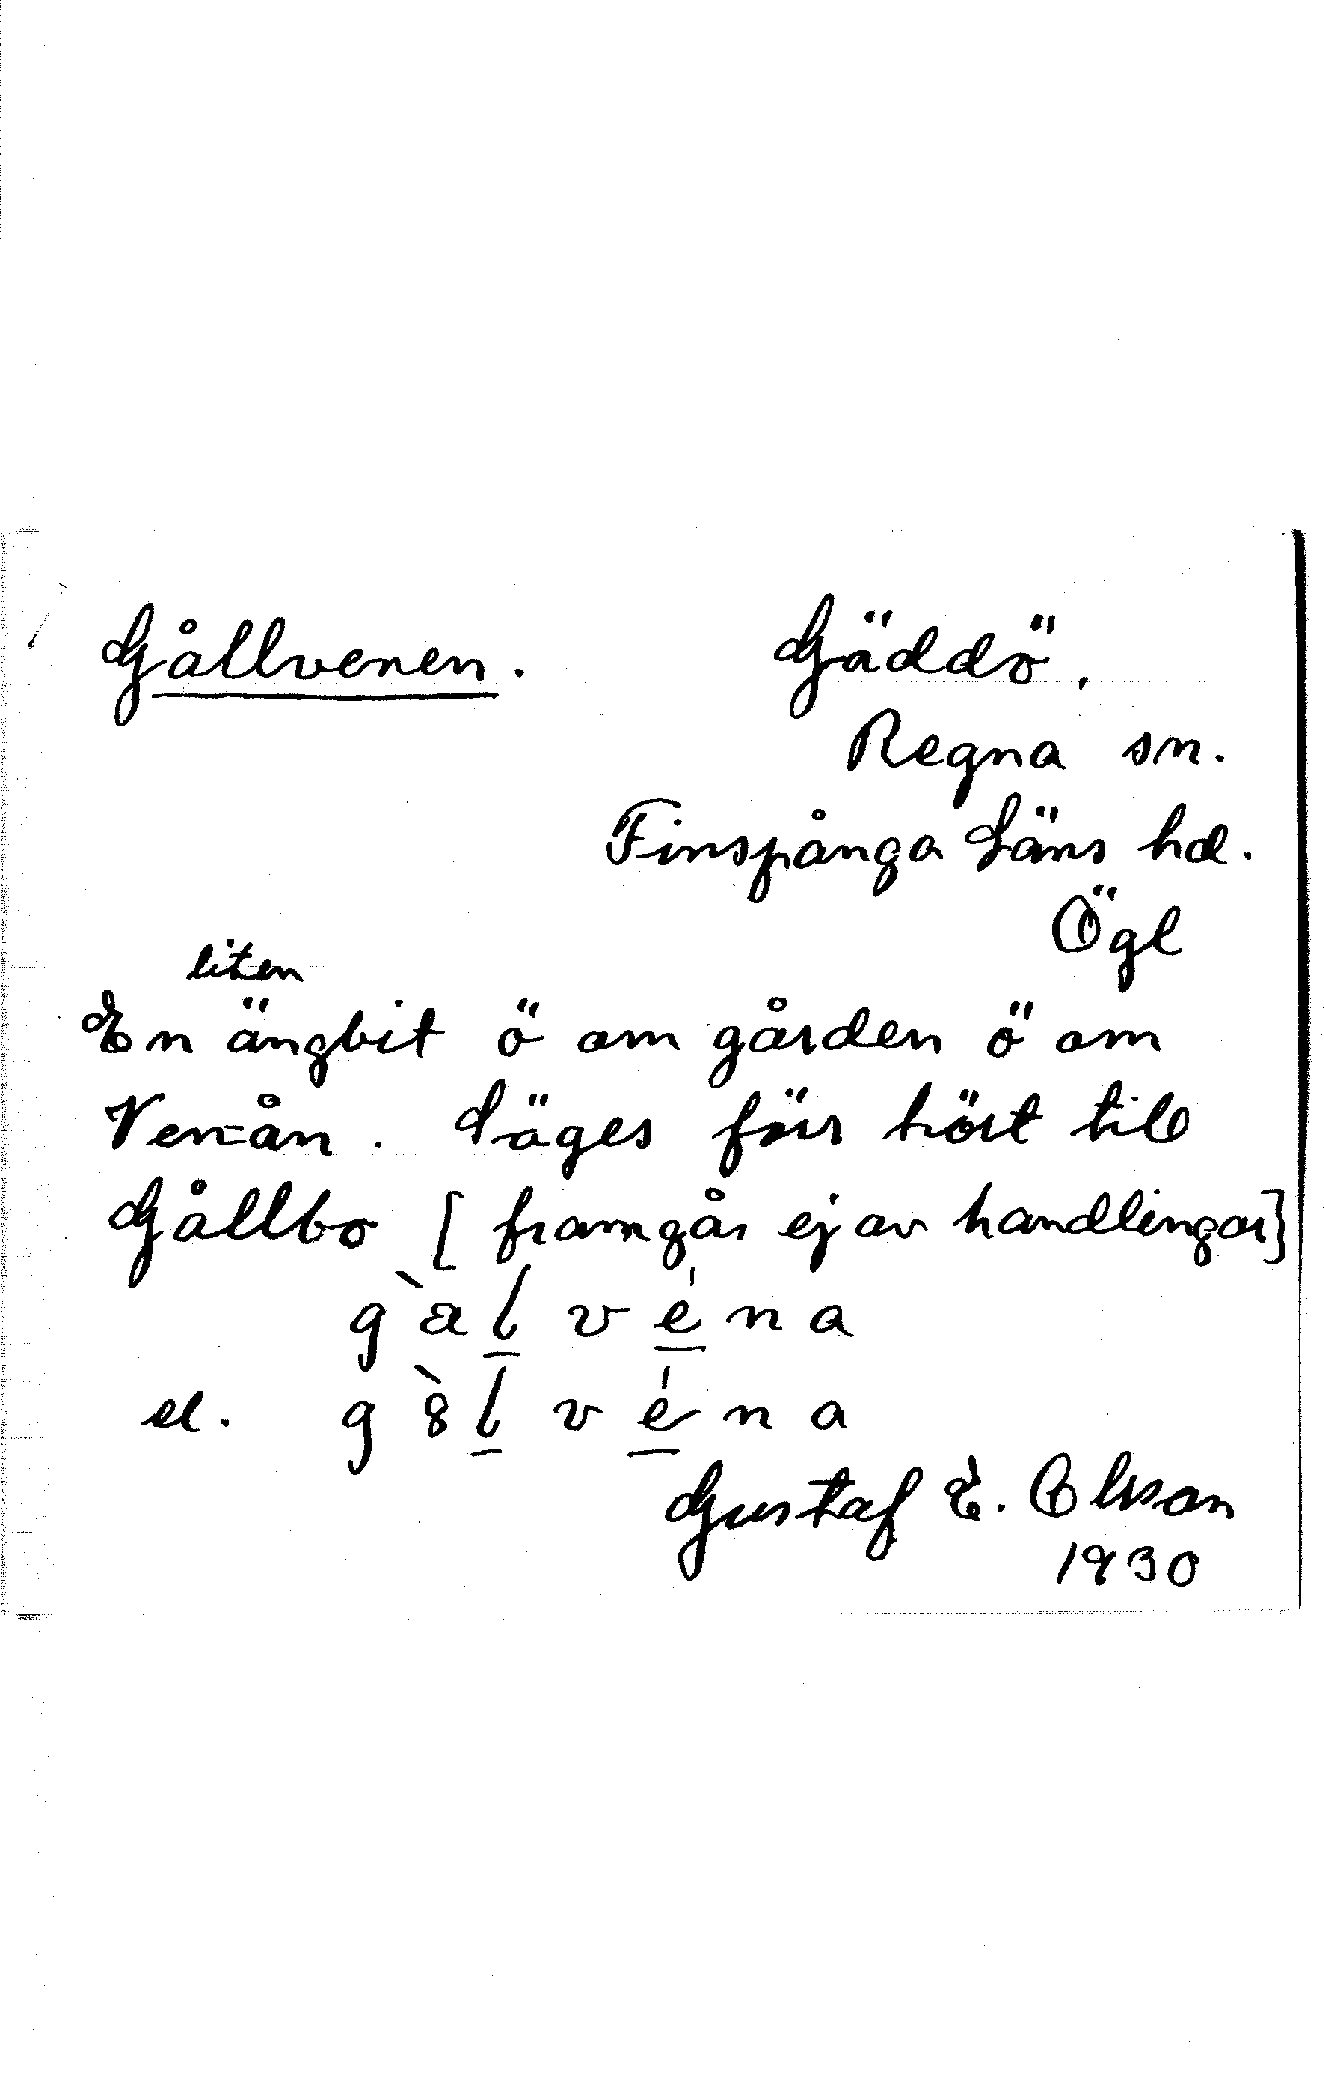 Gållvenen. Gäddö,
Regna sn.
Finspånga Läns hd.
Ögl
liten
En ängbit ö om gården ö om
Ven-ån. Säges förr hört till
Gållbo [framgår ej av handlingar]
g à l v é n a
el. g 8̀ l v é n a
Gustaf E. Olsson
1930